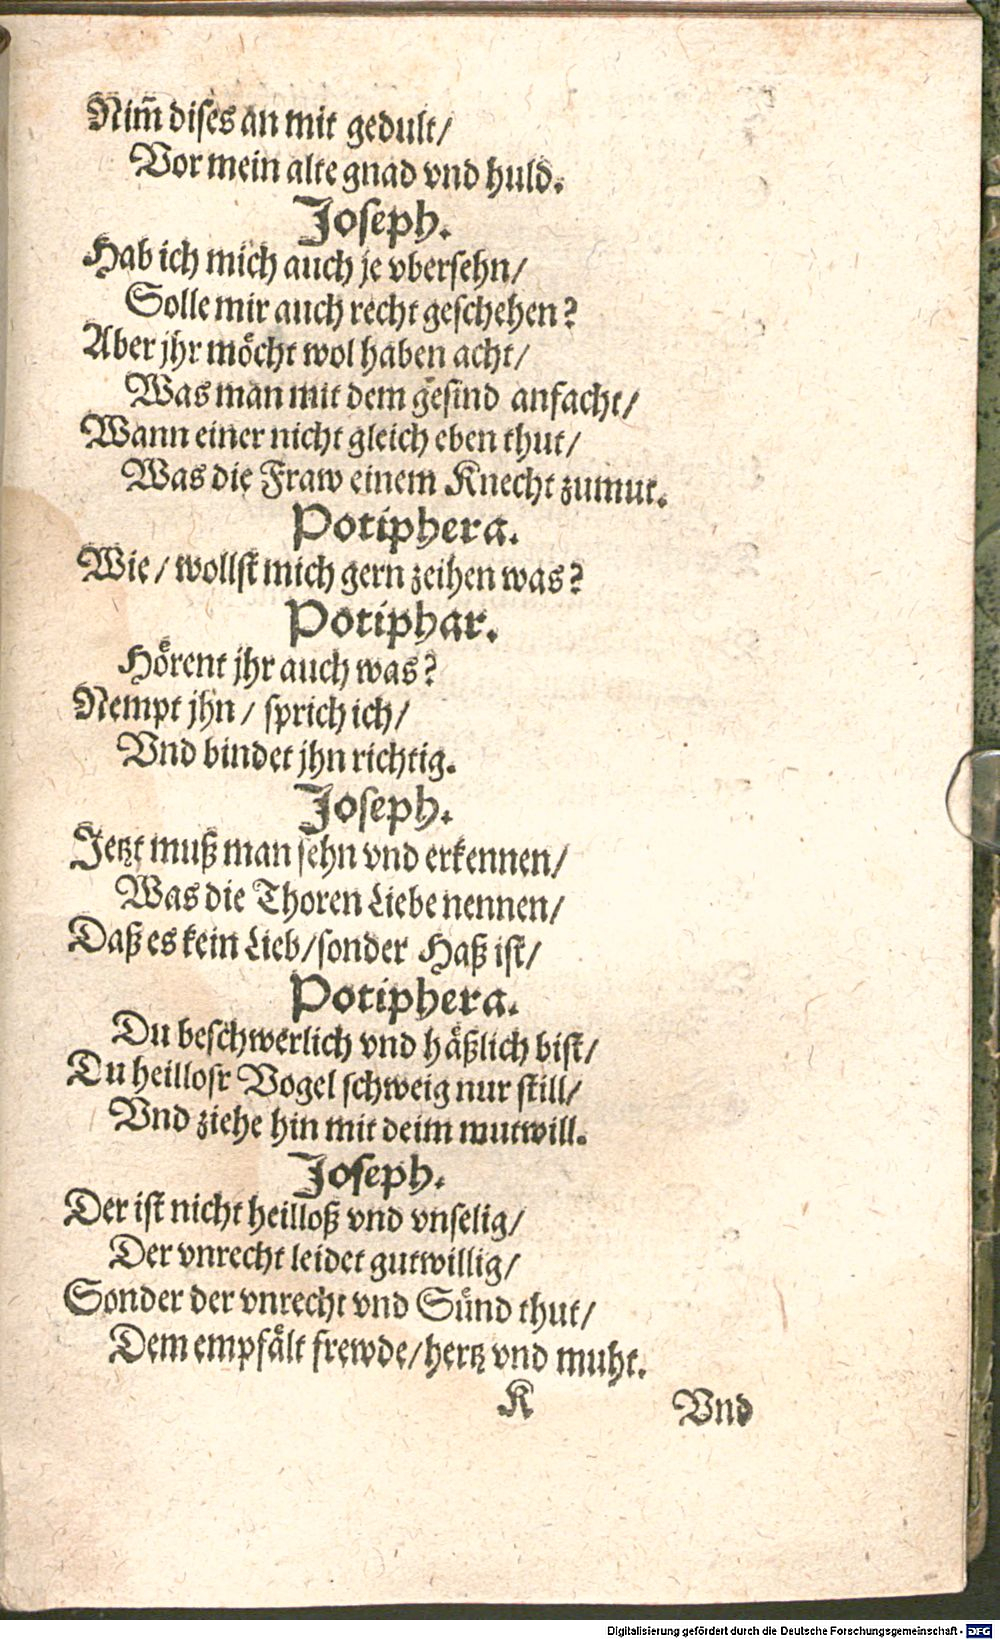 Nim̃ diſes an mit gedult/
Vor mein alte gnad vnd huld.
Joſeph.
Hab ich mich auch je vberſehn/
Solle mir auch recht geſchehen?
Aber jhr moͤcht wol haben acht/
Was man mit dem geſind anfacht/
Wann einer nicht gleich eben thut/
Was die Fraw einem Knecht zumut.
Potiphera.
Wie/ wollſt mich gern zeihen was?
Potiphar.
Hoͤrent jhr auch was?
Nempt jhn/ ſprich ich/
Vnd bindet jhn richtig.
Joſeph.
Jetzt muß man ſehn vnd erkennen/
Was die Thoren Liebe nennen/
Daß es kein Lieb/ſonder Haß iſt/
Potiphera.
Du beſchwerlich vnd haͤßlich biſt/
Du heilloſr Vogel ſchweig nur ſtill/
Vnd ziehe hin mit deim mutwill.
Joſeph.
Der iſt nicht heilloß vnd vnſelig/
Der vnrecht leidet gutwillig/
Sonder der vnrecht vnd Suͤnd thut/
Dem empfaͤlt frewde/hertz vnd muht.
K Vnd
Digitalisierung gefördert durch die Deutsche Forschungsgemeinschaft - DFG